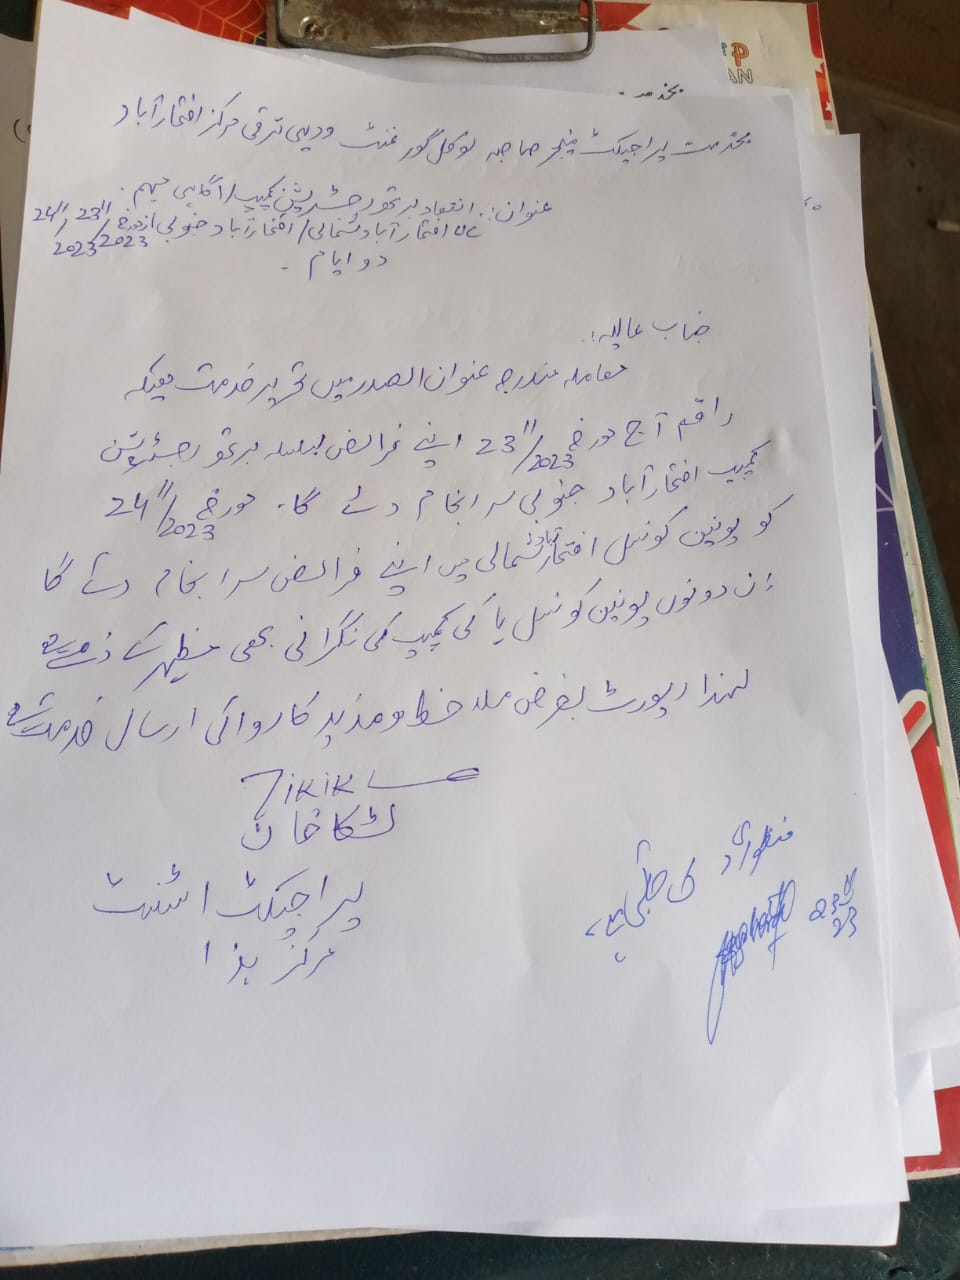 بخدمت پراجیکٹ منیجر صاحبہ لوکل گورنمنٹ ودیہی ترقی مرکز افتخارآباد
عنوان: انعقاد برتھ رجسٹریشن کیمپ/آگاہی مہم۔
UC افتخارآباد شمالی/افتخارآباد جنوبی ازمورخہ 23/11/2023 24/11/2023
دو ایام ۔
جناب عالیہ!
معاملہ مندرجہ عنوان الصدر میں تحریر خدمت ہیکہ
راقم آج مورخہ 23/11/2023 اپنے فرائض بسلسلہ برتھ رجسٹریشن
کیمپ افتخارآباد جنوبی سرانجام دے گا۔ مورخہ 24/11/2023
کو یونین کونسل افتخارآباد شمالی میں اپنے فرائض سرانجام دے گا
ان دونوں یونین کونسل ہا کی کیمپ کی نگرانی بھی مظہر کے ذمہ ہے
لہذا رپورٹ بغرض ملاحظہ ومذید کاروائی ارسال خدمت ہے
ٹکا خان
پراجیکٹ اسٹنٹ
مرکز ہذا
منظوری دی جاتی ہے۔
23/11/23
بخدمت
P
AN